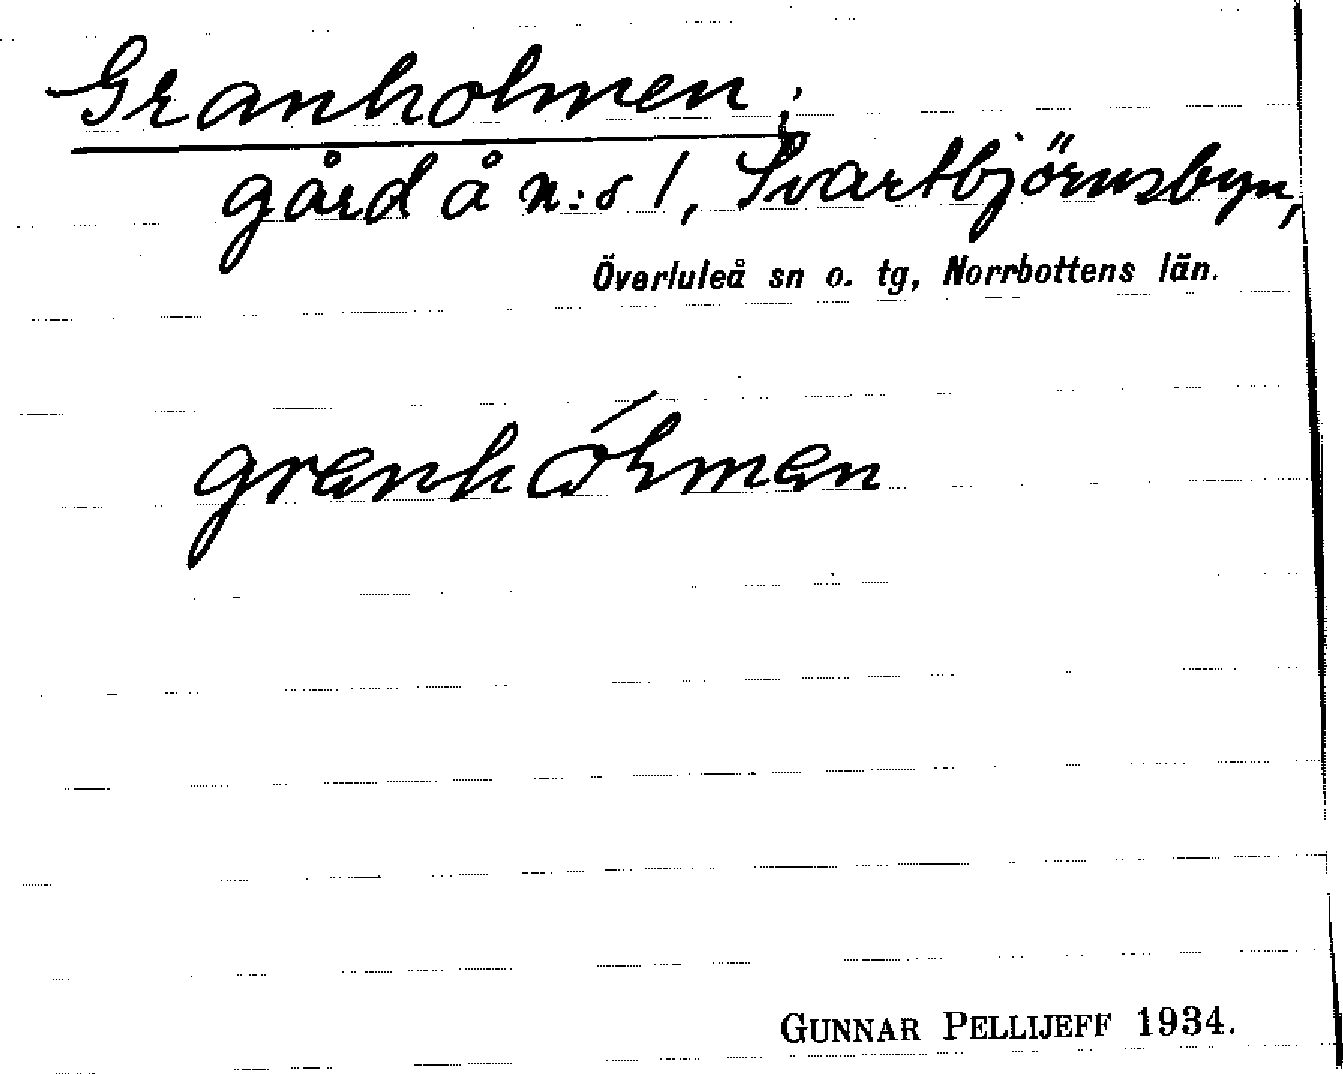 Granholmen;
gård å n:o 1, Svartbjörnsbyn,
Överluleå sn o. tg, Norrbottens län.
GUNNAR PELLIJEFF 1934.